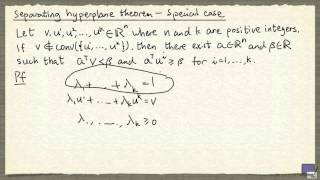 Separating hyperplane theorem - Special case
Let v, u¹, u², ..., uᵏ ∈ ℝⁿ where n and k are positive integers.
If v ∉ conv({u¹, ..., uᵏ}), then there exist a ∈ ℝⁿ and β ∈ ℝ
such that aᵀv < β and aᵀuⁱ ≥ β for i=1, ..., k.
Pf
λ₁ + ... + λₖ = 1
λ₁u¹ + ... + λₖuᵏ = v
λ₁, ..., λₖ ≥ 0